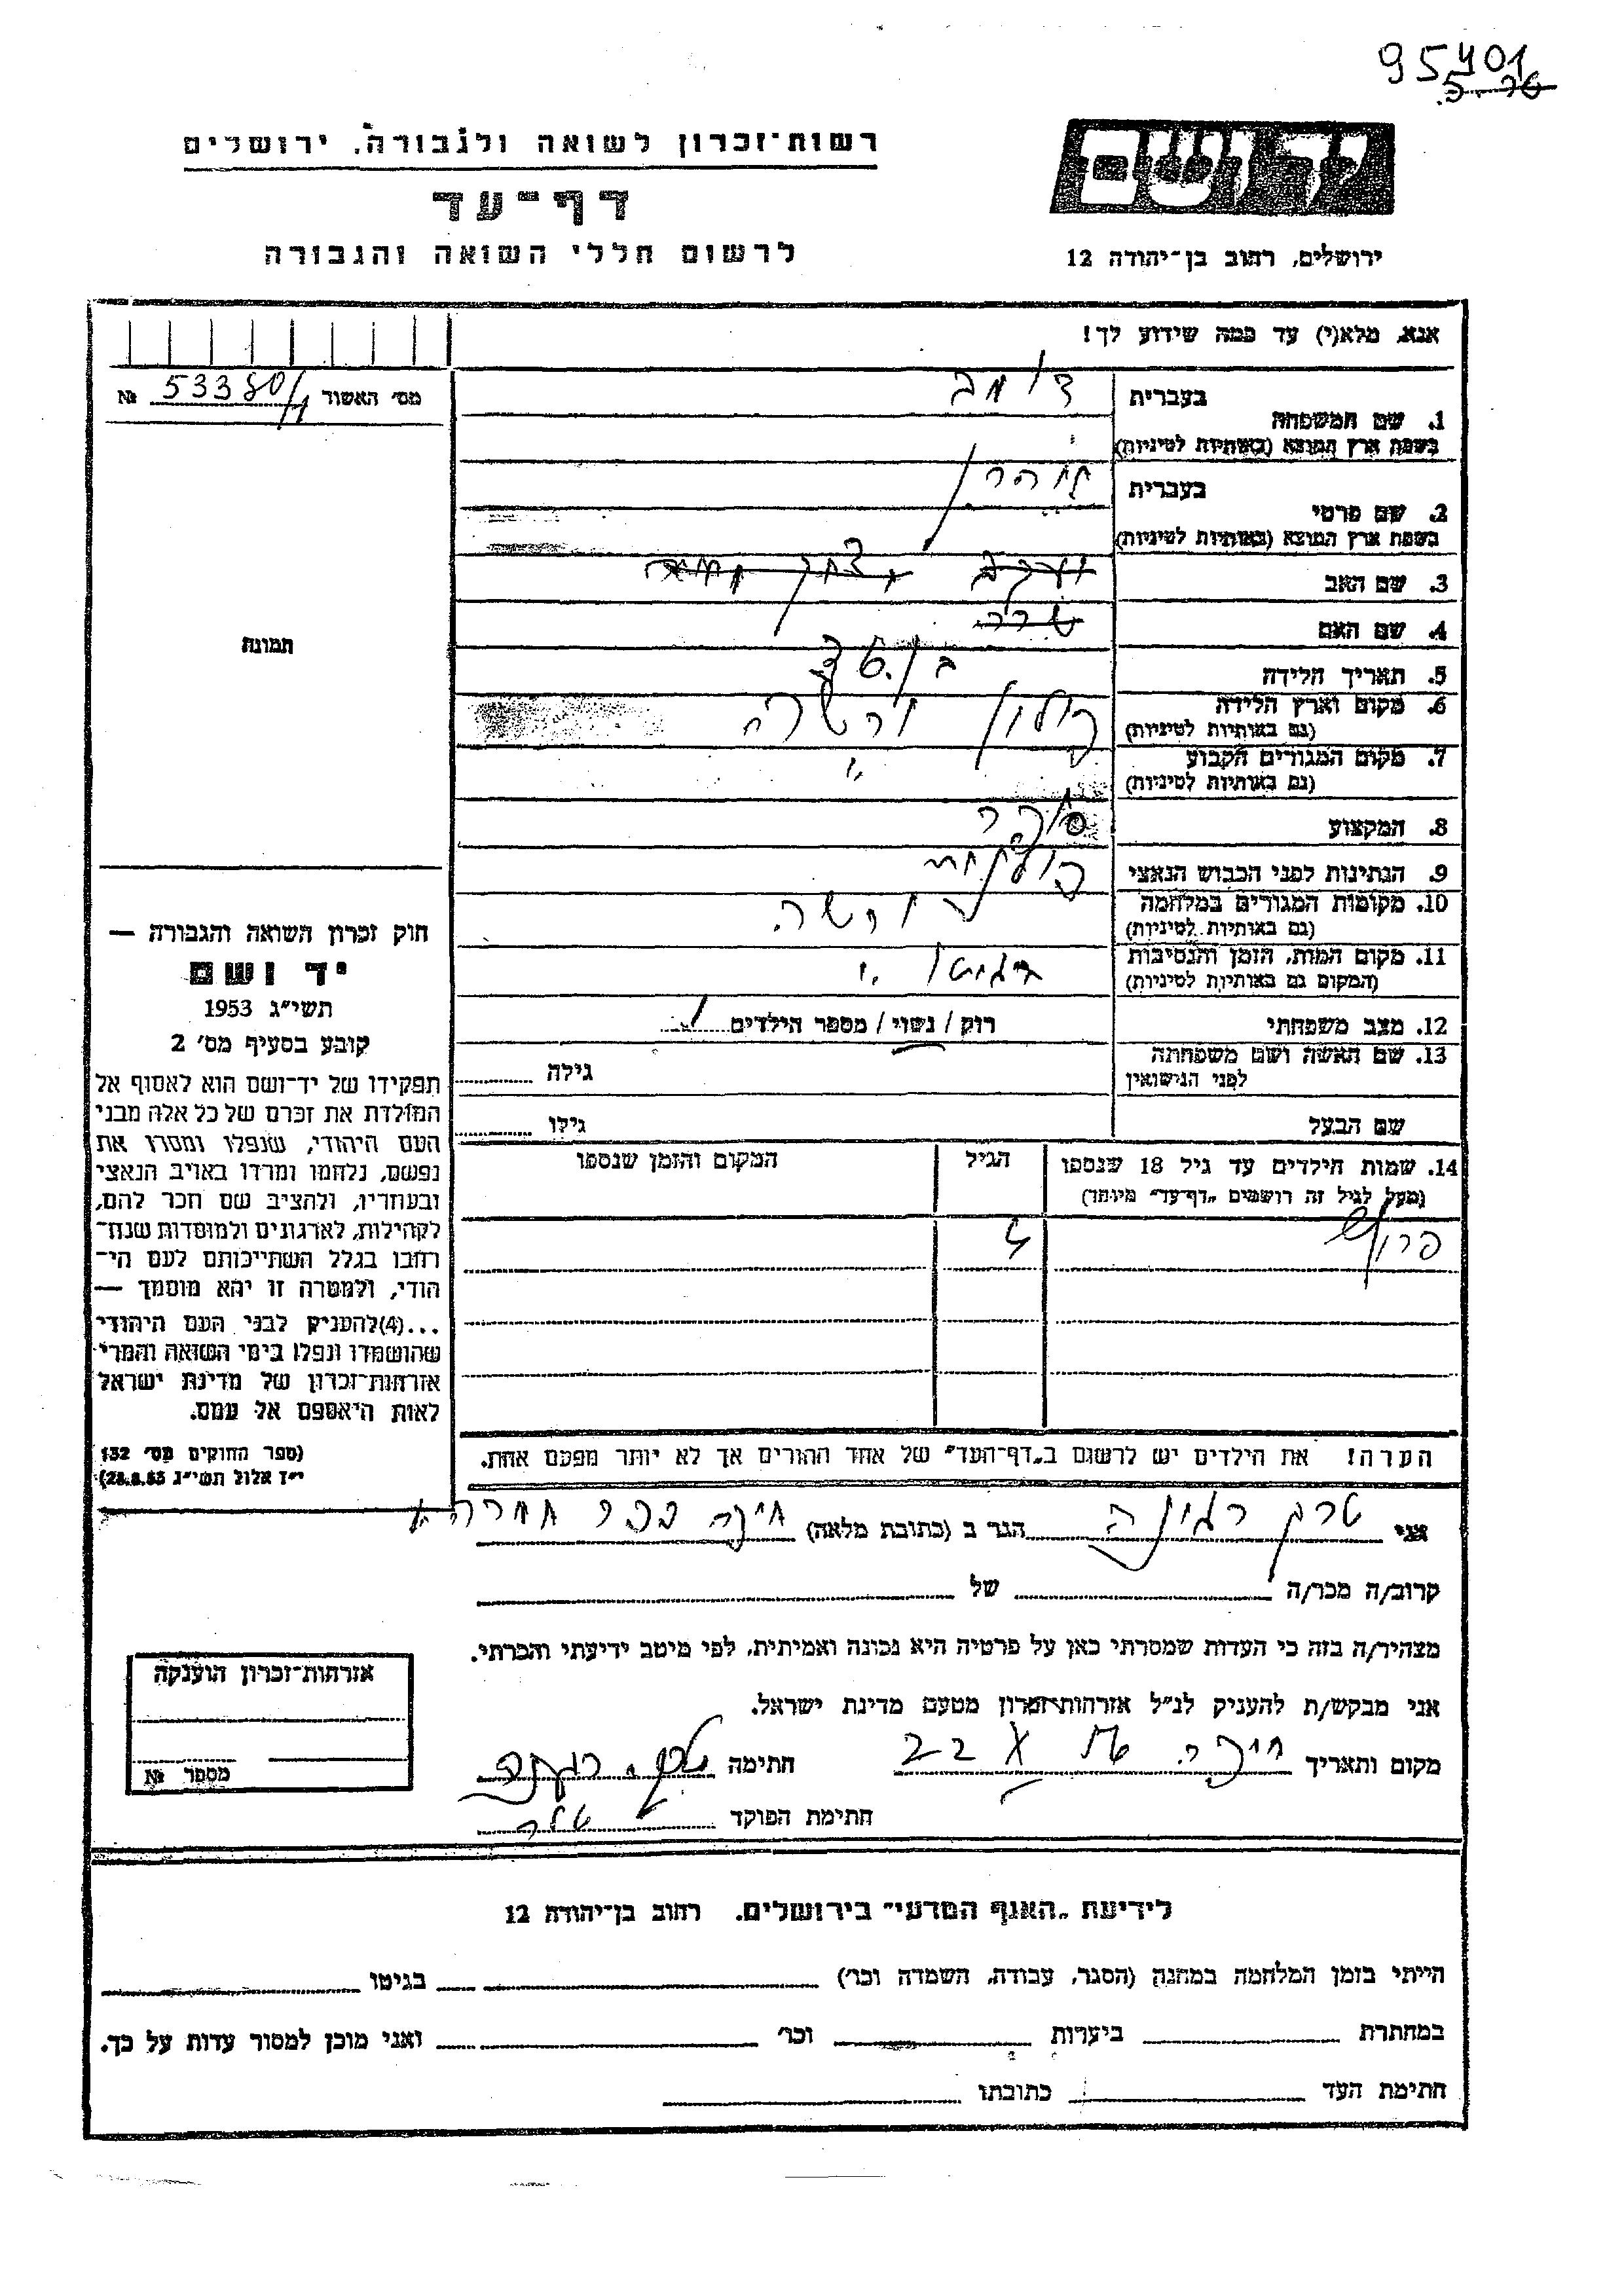 95401
רשות־זכרון לשואה ולגבורה, ירושלים
יד ושם
דף־עד
לרשום חללי השואה והגבורה
ירושלים, רחוב בן־יהודה 12
אנא, מלא(י) עד כמה שידוע לך!
מס׳ האשור № 53380/1
1. שם המשפחה
בעברית
בשפת ארץ המוצא (באותיות לטיניות)
2. שם פרטי
בעברית
בשפת ארץ המוצא (באותיות לטיניות)
3. שם האב
4. שם האם
שרה
5. תאריך הלידה
ב 36
6. מקום וארץ הלידה
(גם באותיות לטיניות)
פולין ורשה
7. מקום המגורים הקבוע
(גם באותיות לטיניות)
"
8. המקצוע
סוחר
9. הנתינות לפני הכבוש הנאצי
פולנית
10. מקומות המגורים במלחמה
(גם באותיות לטיניות)
ורשה
11. מקום המות, הזמן והנסיבות
(המקום גם באותיות לטיניות)
בגיטו "
12. מצב משפחתי
רוק / נשוי / מספר הילדים 1
13. שם האשה ושם משפחתה
לפני הנישואין
גילה
שם הבעל
גילו
14. שמות הילדים עד גיל 18 שנספו
(מעל לגיל זה רושמים „דף־עד״ מיוחד)
הגיל
המקום והזמן שנספו
תמונה
חוק זכרון השואה והגבורה —
יד ושם
תשי״ג 1953
קובע בסעיף מס׳ 2
תפקידו של יד־ושם הוא לאסוף אל
המולדת את זכרם של כל אלה מבני
העם היהודי, שנפלו ומסרו את
נפשם, נלחמו ומרדו באויב הנאצי
ובעוזריו, ולהציב שם וזכר להם,
לקהילות, לארגונים ולמוסדות שנח־
רבו בגלל השתייכותם לעם הי־
הודי, ולמטרה זו יהא מוסמך —
...(4)להעניק לבני העם היהודי
שהושמדו ונפלו בימי השואה והמרי
אזרחות־זכרון של מדינת ישראל
לאות היאספם אל עמם.
(ספר החוקים מס׳ 132
י״ז אלול תשי״ג 28.8.53)
הערה! את הילדים יש לרשום ב„דף־העד״ של אחד ההורים אך לא יותר מפעם אחת.
אני הגר ב (כתובת מלאה) חיפה
קרוב/ה מכר/ה של
מצהיר/ה בזה כי העדות שמסרתי כאן על פרטיה היא נכונה ואמיתית, לפי מיטב ידיעתי והכרתי.
אני מבקש/ת להעניק לנ״ל אזרחות־זכרון מטעם מדינת ישראל.
מקום ותאריך חיפה 22 חתימה
חתימת הפוקד
אזרחות־זכרון הוענקה
מספר №
לידיעת „האגף המדעי״ בירושלים. רחוב בן־יהודה 12
הייתי בזמן המלחמה במחנה (הסגר, עבודה, השמדה וכו׳) בגיטו
במחתרת ביערות וכו׳ ואני מוכן למסור עדות על כך.
חתימת העד כתובתו